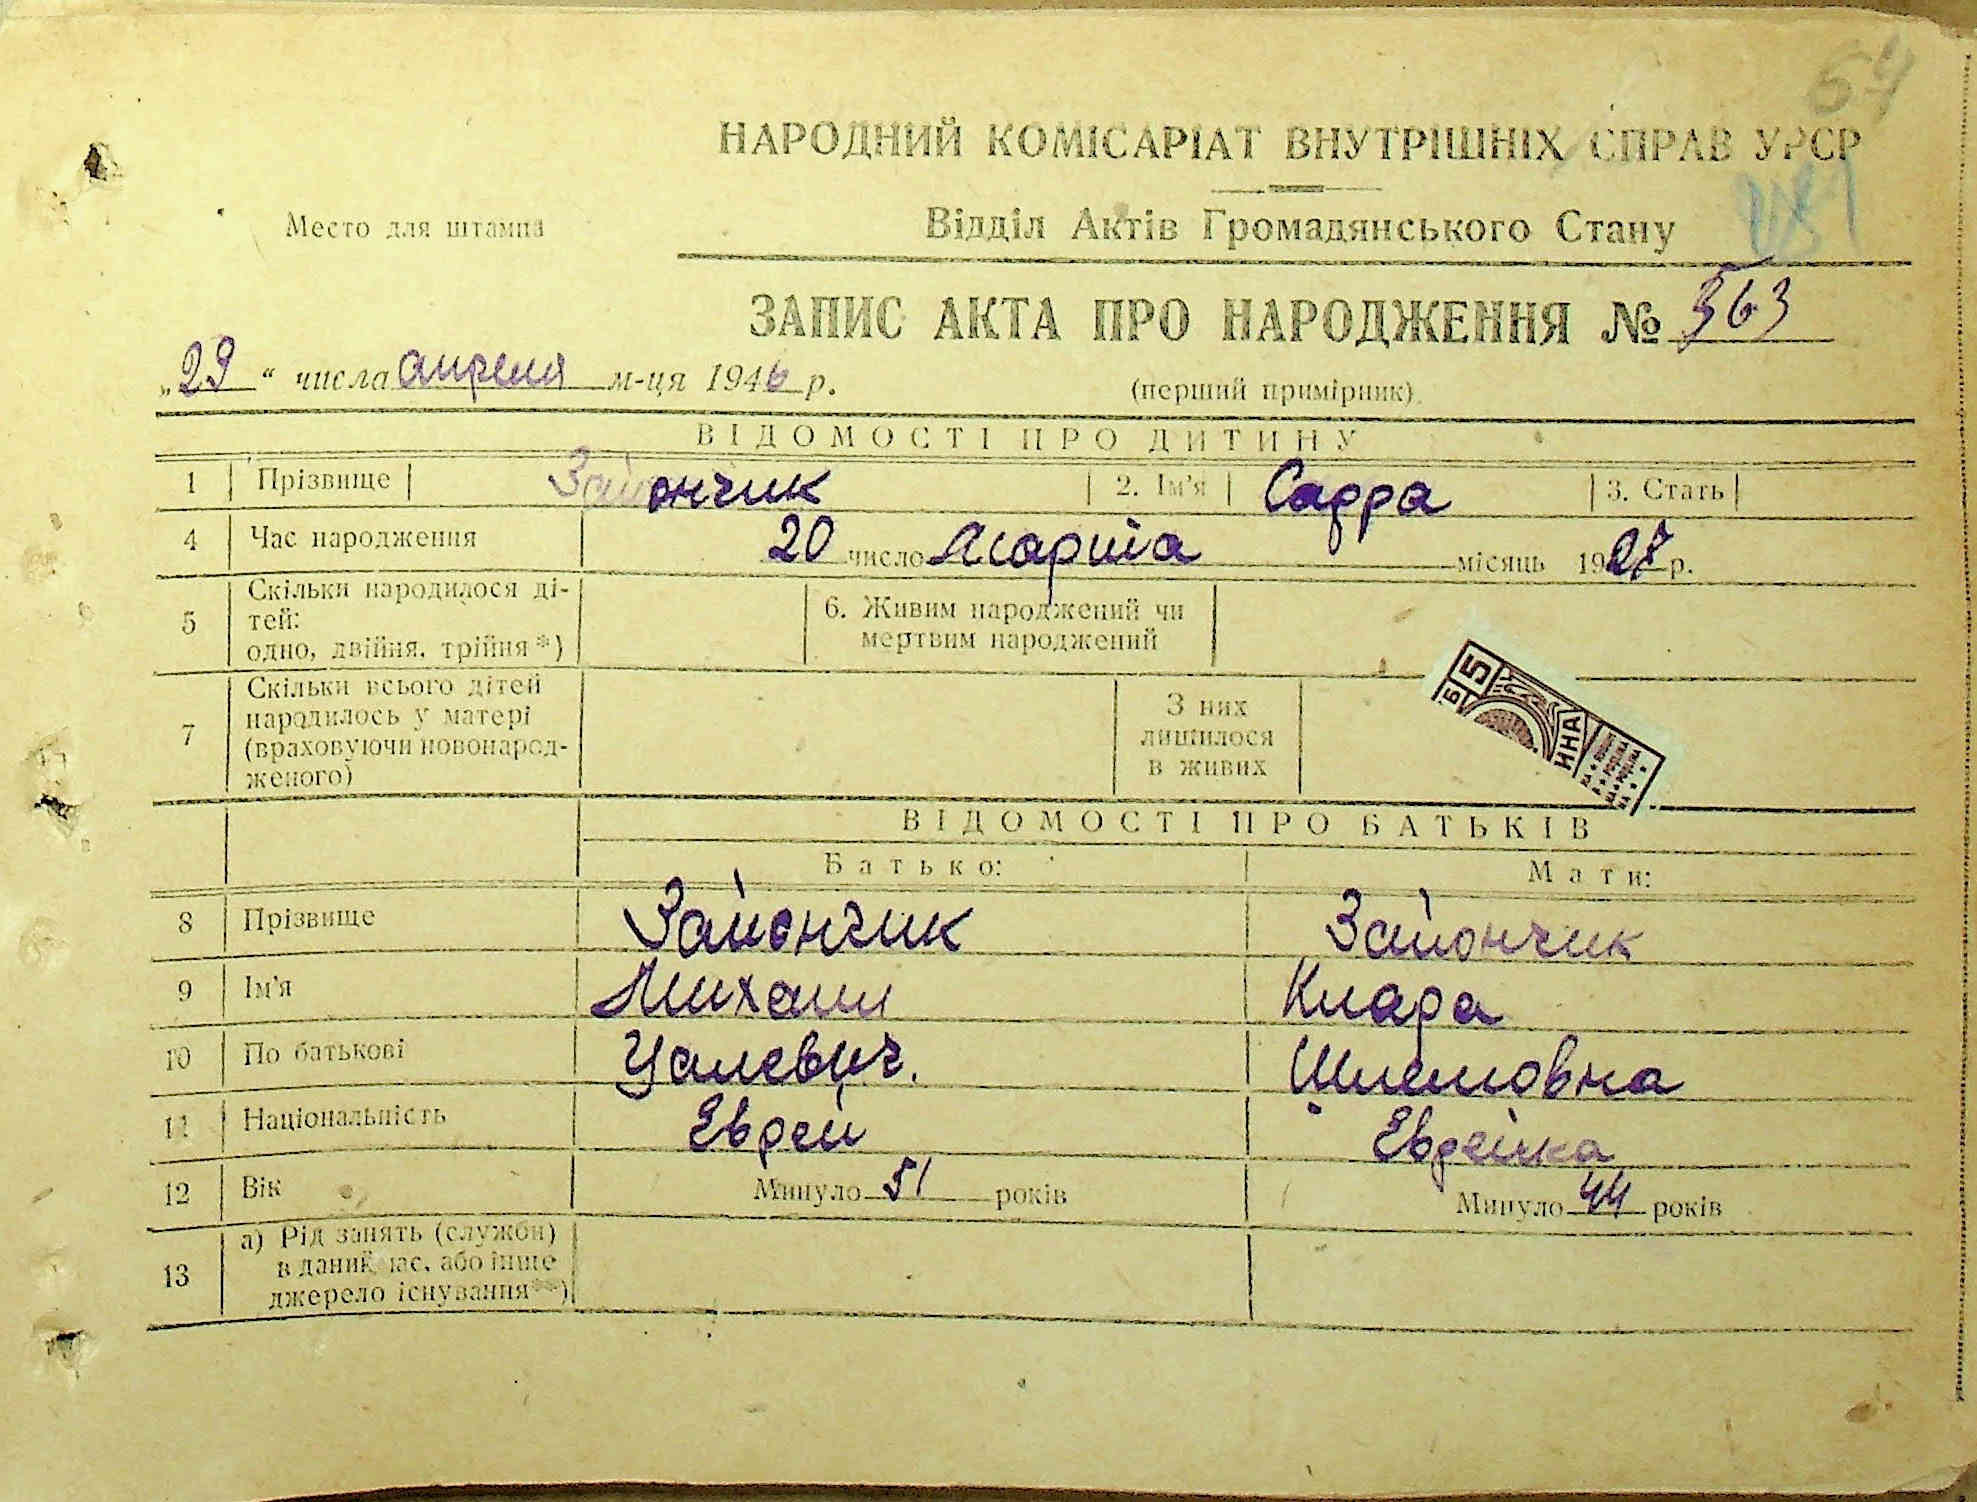 НАРОДНИЙ КОМІСАРІАТ ВНУТРІШНІХ СПРАВ УРСР
Место для штампа
Відділ Актів Громадянського Стану
ЗАПИС АКТА ПРО НАРОДЖЕННЯ № 563
„29“ числа апреля м-ця 1946 р.
(перший примірник)
ВІДОМОСТІ ПРО ДИТИНУ
1 Прізвище Зайончик 2. Ім'я Сарра 3. Стать
4 Час народження 20 число Марта місяць 1927 р.
5 Скільки народилося ді-
тей:
одно, двійня, трійня *)
6. Живим народжений чи
мертвим народжений
7 Скільки всього дітей
народилось у матері
(враховуючи новонарод-
женого)
З них
лишилося
в живих
Б 5
ИНА
ВІДОМОСТІ ПРО БАТЬКІВ
Батько: Мати:
8 Прізвище Зайончик Зайончик
9 Ім'я Михаил Клара
10 По батькові Уалевич. Шлемовна
11 Національність Еврей Еврейка
12 Вік Минуло 51 років Минуло 44 років
13 а) Рід занять (служби)
в даний час, або інше
джерело існування **)